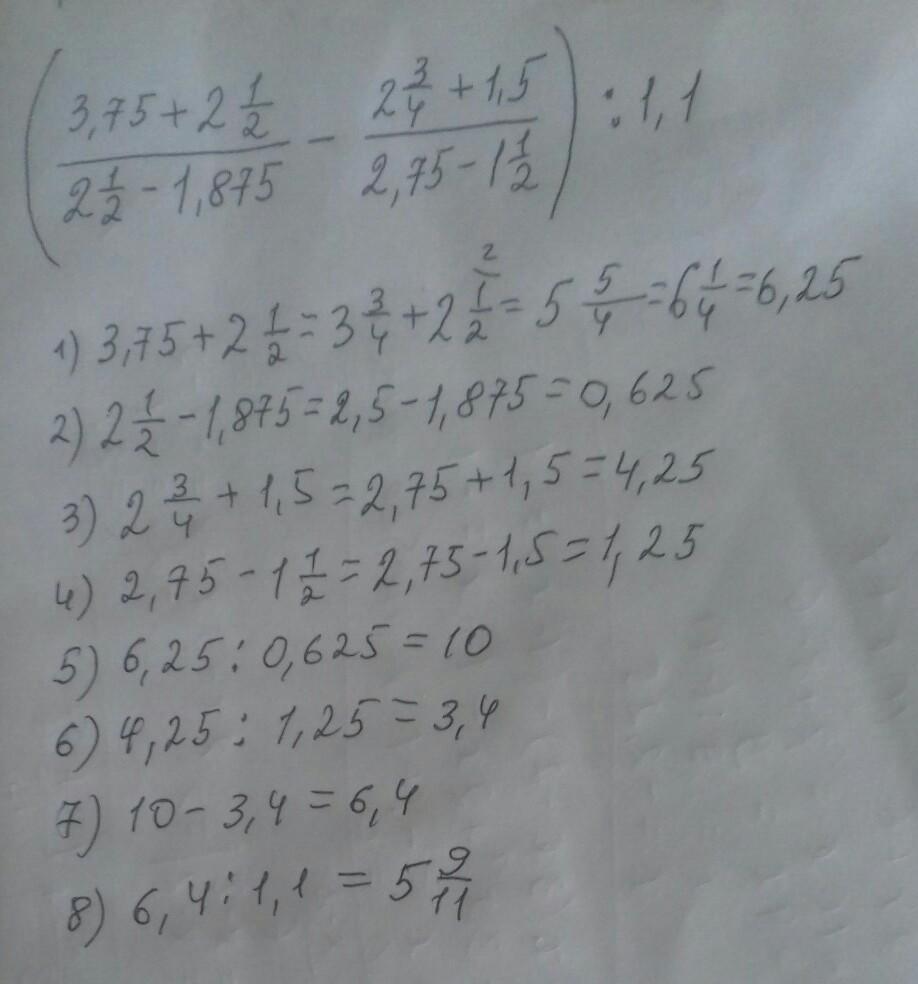 (3,75 + 2 1/2 / 2 1/2 - 1,875 - 2 3/4 + 1,5 / 2,75 - 1 1/2) : 1,1
1) 3,75 + 2 1/2 = 3 3/4 + 2 1/2 2 = 5 5/4 = 6 1/4 = 6,25
2) 2 1/2 - 1,875 = 2,5 - 1,875 = 0,625
3) 2 3/4 + 1,5 = 2,75 + 1,5 = 4,25
4) 2,75 - 1 1/2 = 2,75 - 1,5 = 1,25
5) 6,25 : 0,625 = 10
6) 4,25 : 1,25 = 3,4
7) 10 - 3,4 = 6,4
8) 6,4 : 1,1 = 5 9/11